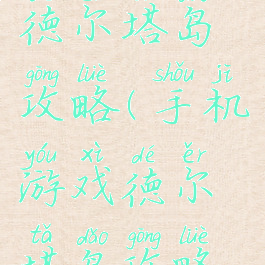 德尔塔岛
gōng lüè shǒu jī
攻略(手机
yóu xì dé ěr
游戏德尔
tǎ dǎo gōng lüè
塔岛攻略